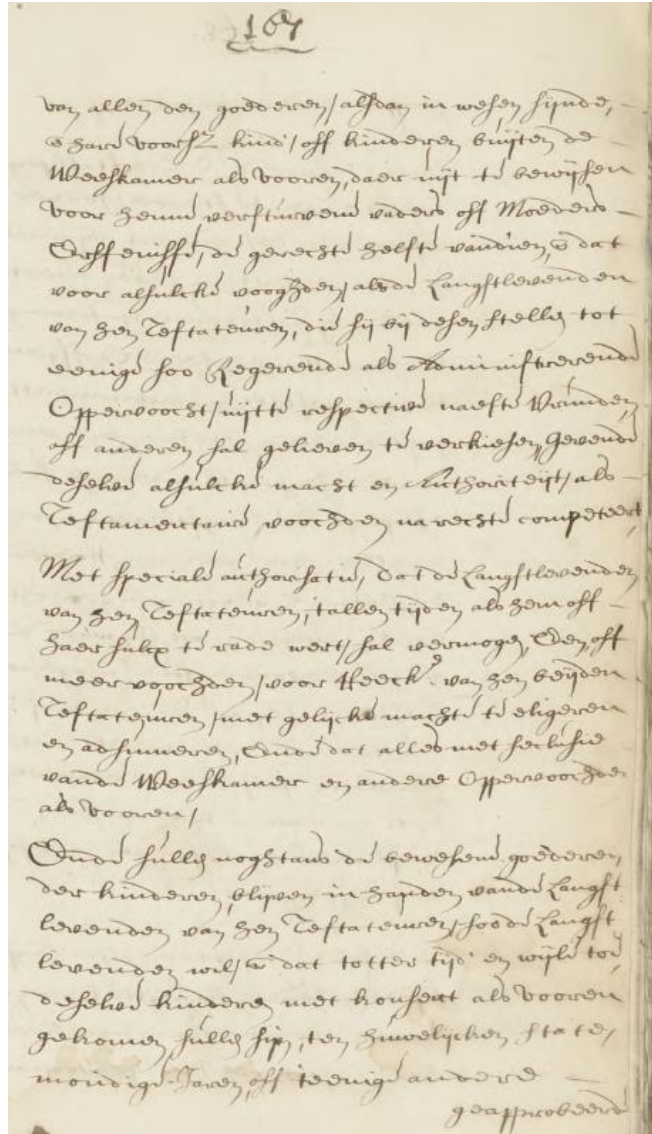 167
van allen den goederen / alsdan in wesen sijnde,
@ hare voorsz kind / off kinderen buijten de
Weeskamer als vooren, daer uijt te bewijsen
voor hunne versturvene vaders off Moeders
Erffenisse, de gerechte helfte vandien, en dat
voor alsulcke vooghden / als de Langstlevenden
van hen Testateuren, die sij bij desen stellen tot
eenige soo Regerende als Administrerende
Oppervoocht / uijtte respective naeste Vrunden,
off anderen sal gelieven te verkiesen, Gevende
deselve alsulcke macht en Authoriteijt / als
Testamentaire voochden na rechte competeert,
Met speciale authorisatie, dat de Langstlevenden
van hen Testateuren, 't allen tijden als hem off
haer sulcx te rade wert / sal vermogen, Een, off
meer voochden / voor van hen beijden
Testateuren / met gelijcke machte te eligeren
en adsumeren, Ende dat alles met seclusie
vande Weeskamer en andere Oppervoochden
als vooren /
Ende sullen noghtans de bewesene goederen
der kinderen, blijven in handen vande Langst
levenden van hen Testateuren, soo de Langst
levenden wil / en dat totter tijd en wijle toe,
deselve kinderen met konsent als vooren
gekomen sullen sijn, ten huwelijcken state,
mondige Jaren, off t'eenige andere
geapprobeerde